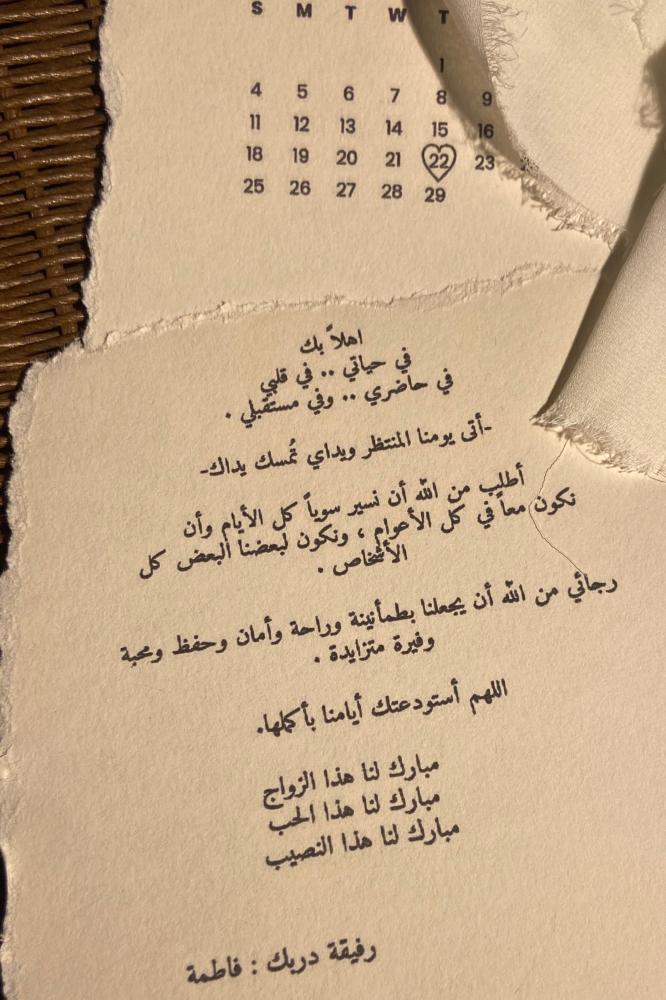 S M T W T
1
4 5 6 7 8 9
11 12 13 14 15 16
18 19 20 21 22 23
25 26 27 28 29
اهلاً بك
في حياتي .. في قلبي
في حاضري .. وفي مستقبلي .
-أتى يومنا المنتظر ويداي تُمسك يداك-
أطلب من الله أن نسير سوياً كل الأيام وأن
نكون معاً في كل الأعوام ، ونكون لبعضنا البعض كل
الأشخاص .
رجائي من الله أن يجعلنا بطمأنينة وراحة وأمان وحفظ ومحبة
وفيرة متزايدة .
اللهم أستودعتك أيامنا بأكملها.
مبارك لنا هذا الزواج
مبارك لنا هذا الحب
مبارك لنا هذا النصيب
رفيقة دربك : فاطمة